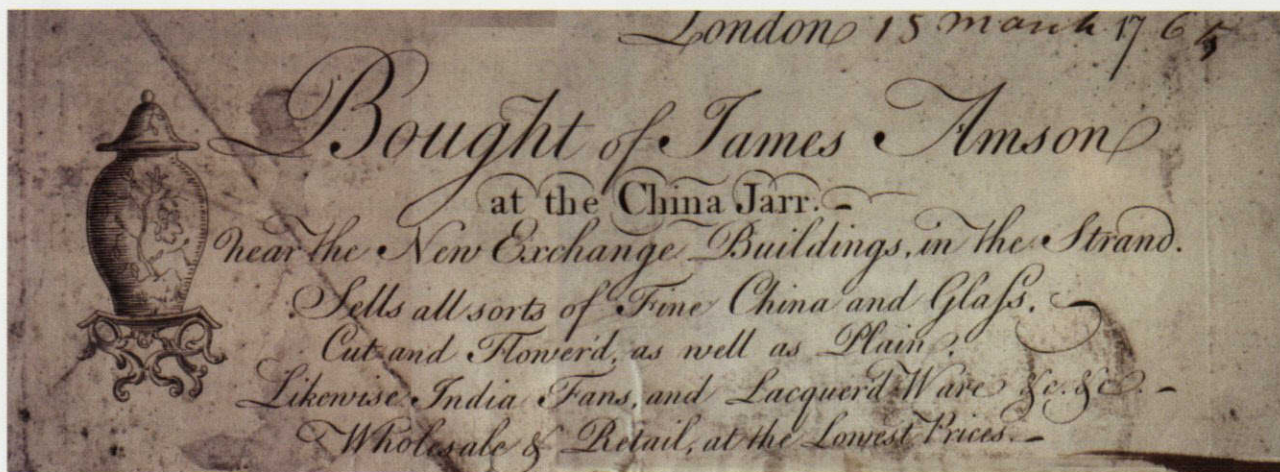 London 15 March 1765
Bought of James Amson
at the China Jarr.-
near the New Exchange Buildings, in the Strand.
Sells all sorts of Fine China and Glaſs.
Cut and Flower'd, as well as Plain.
Likewise India Fans, and Lacquerd Ware &c. &c. -
Wholesale & Retail, at the Lowest Prices.-